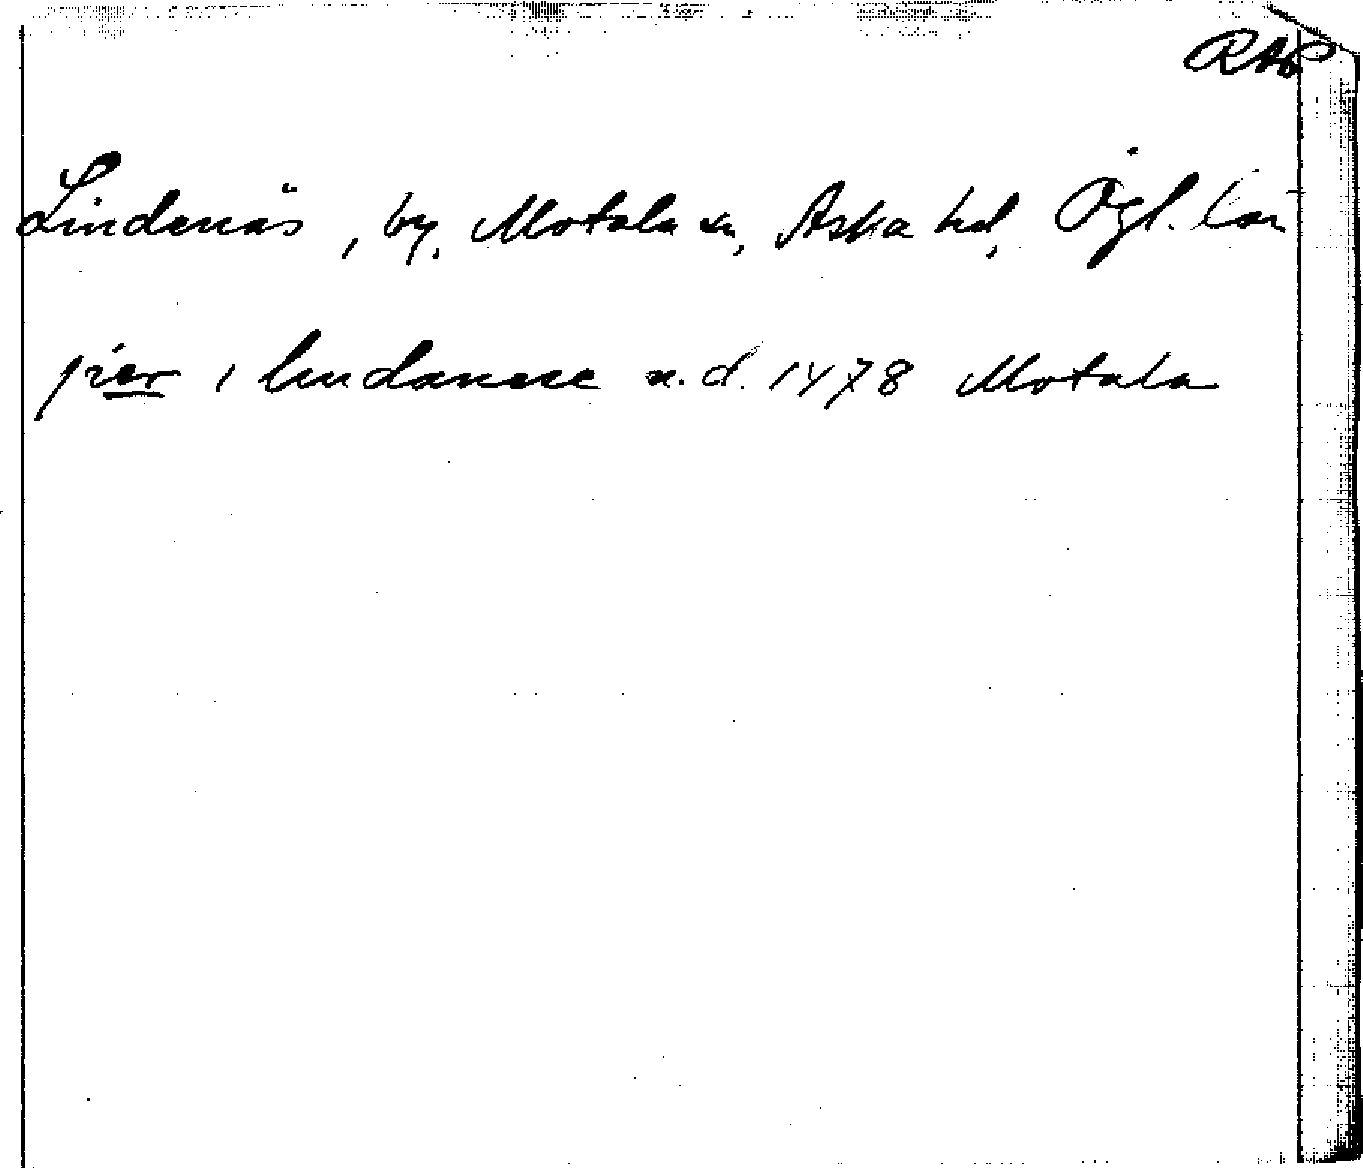 RAP
Lindenäs, by, Motala sn, Aska hd, Ögl. län
pi̲e̲r̲ i lindanese u.d. 1478 Motala